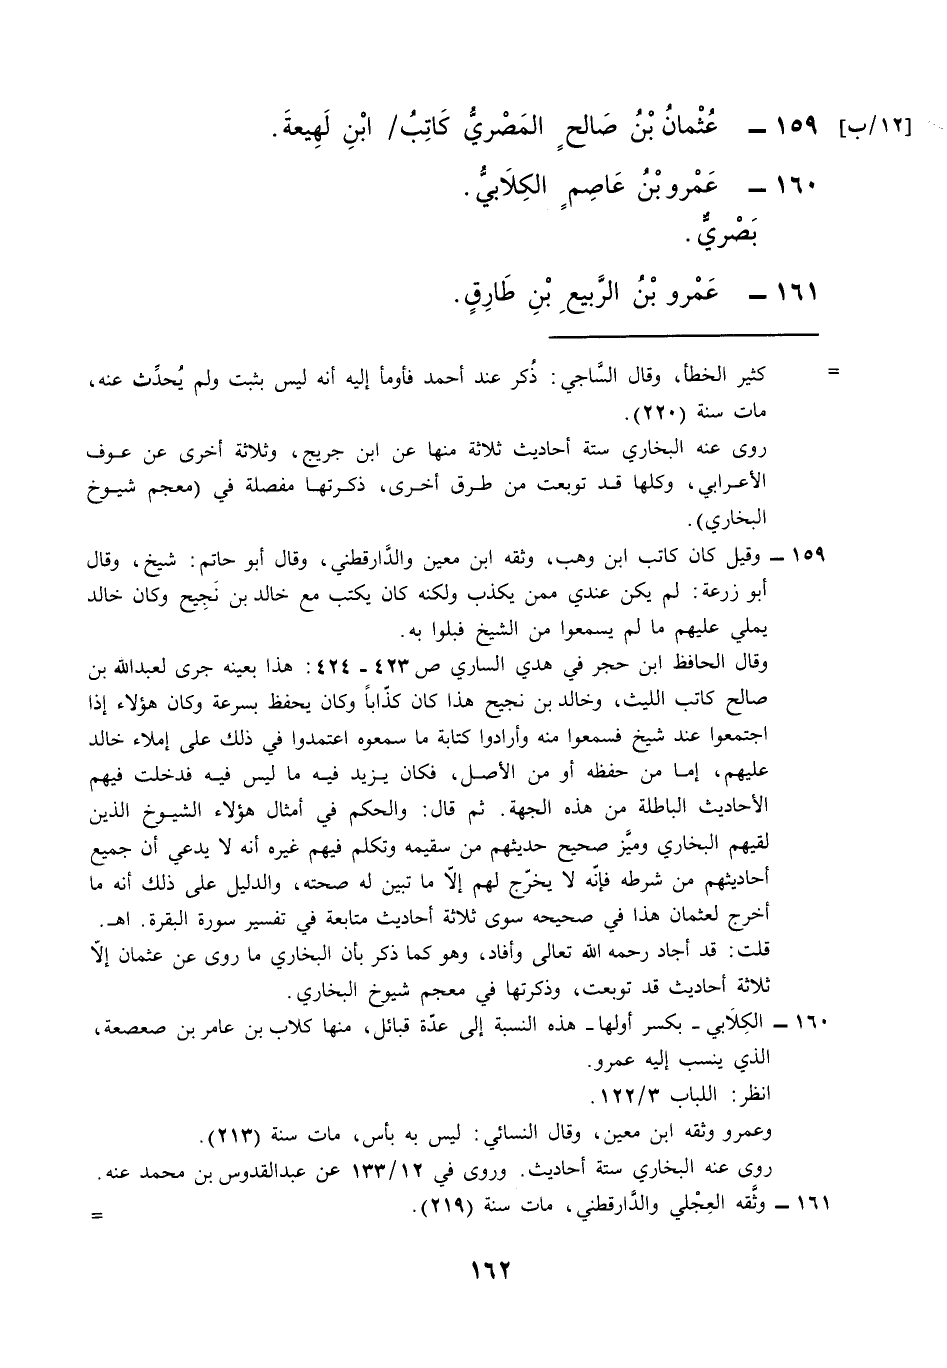 [١٢/ب] ١٥٩ – عُثْمانُ بْنُ صَالحٍ المَصْريُّ كَاتِبُ/ ابْنِ لَهِيعةَ.
١٦٠ – عَمْرو بْنُ عَاصِمٍ الكِلَابيُّ.
بَصْريٌّ.
١٦١ – عَمْرو بْنُ الرَّبيعِ بْنِ طَارِقٍ.
= كثير الخطأ، وقال السَّاجي: ذُكر عند أحمد فأومأ إليه أنه ليس بثبت ولم يُحدِّث عنه،
مات سنة (٢٢٠).
روى عنه البخاري ستة أحاديث ثلاثة منها عن ابن جريج، وثلاثة أخرى عن عوف
الأعرابي، وكلها قد توبعت من طرق أخرى، ذكرتها مفصلة في (معجم شيوخ
البخاري).
١٥٩ – وقيل كان كاتب ابن وهب، وثقه ابن معين والدَّارقطني، وقال أبو حاتم: شيخ، وقال
أبو زرعة: لم يكن عندي ممن يكذب ولكنه كان يكتب مع خالد بن نَجِيح وكان خالد
يملي عليهم ما لم يسمعوا من الشيخ فبلوا به.
وقال الحافظ ابن حجر في هدي الساري ص ٤٢٣ - ٤٢٤: هذا بعينه جرى لعبدالله بن
صالح كاتب الليث، وخالد بن نجيح هذا كان كذّاباً وكان يحفظ بسرعة وكان هؤلاء إذا
اجتمعوا عند شيخ فسمعوا منه وأرادوا كتابة ما سمعوه اعتمدوا في ذلك على إملاء خالد
عليهم، إما من حفظه أو من الأصل، فكان يزيد فيه ما ليس فيه فدخلت فيهم
الأحاديث الباطلة من هذه الجهة. ثم قال: والحكم في أمثال هؤلاء الشيوخ الذين
لقيهم البخاري وميَّز صحيح حديثهم من سقيمه وتكلم فيهم غيره أنه لا يدعي أن جميع
أحاديثهم من شرطه فإنّه لا يخرّج لهم إلّا ما تبين له صحته، والدليل على ذلك أنه ما
أخرج لعثمان هذا في صحيحه سوى ثلاثة أحاديث متابعة في تفسير سورة البقرة. اهـ.
قلت: قد أجاد رحمه الله تعالى وأفاد، وهو كما ذكر بأن البخاري ما روى عن عثمان إلّا
ثلاثة أحاديث قد توبعت، وذكرتها في معجم شيوخ البخاري.
١٦٠ – الكِلَابي - بكسر أولها - هذه النسبة إلى عدّة قبائل، منها كلاب بن عامر بن صعصعة،
الذي ينسب إليه عمرو.
انظر: اللباب ١٢٢/٣.
وعمرو وثقه ابن معين، وقال النسائي: ليس به بأس، مات سنة (٢١٣).
روى عنه البخاري ستة أحاديث. وروى في ١٣٣/١٢ عن عبدالقدوس بن محمد عنه.
١٦١ – وثَّقه العِجْلي والدَّارقطني، مات سنة (٢١٩). =
١٦٢